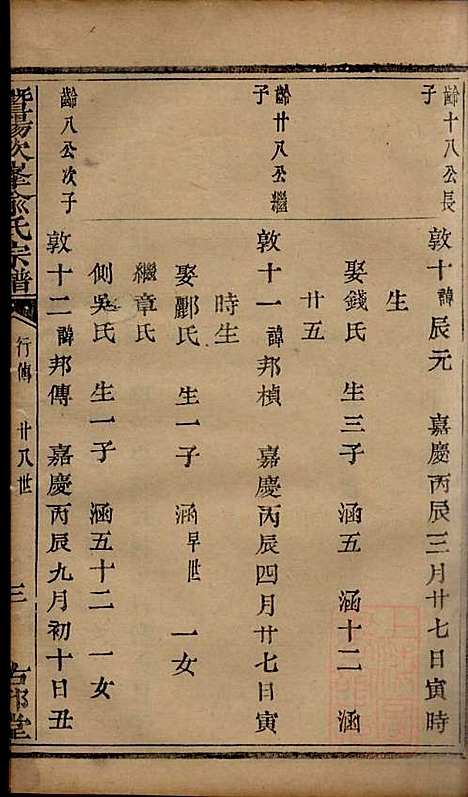 齡十八公長子
敦十 諱辰元 嘉慶丙辰三月廿七日寅時
生
娶錢氏 生三子 涵五 涵十二 涵
廿五
齡廿八公繼子
敦十一 諱邦楨 嘉慶丙辰四月廿七日寅
時生
娶酈氏 生一子 涵早世 一女
繼章氏
側吳氏 生一子 涵五十二 一女
齡八公次子
敦十二 諱邦傳 嘉慶丙辰九月初十日丑
暨陽次峯俞氏宗譜 行傳 廿八世 三